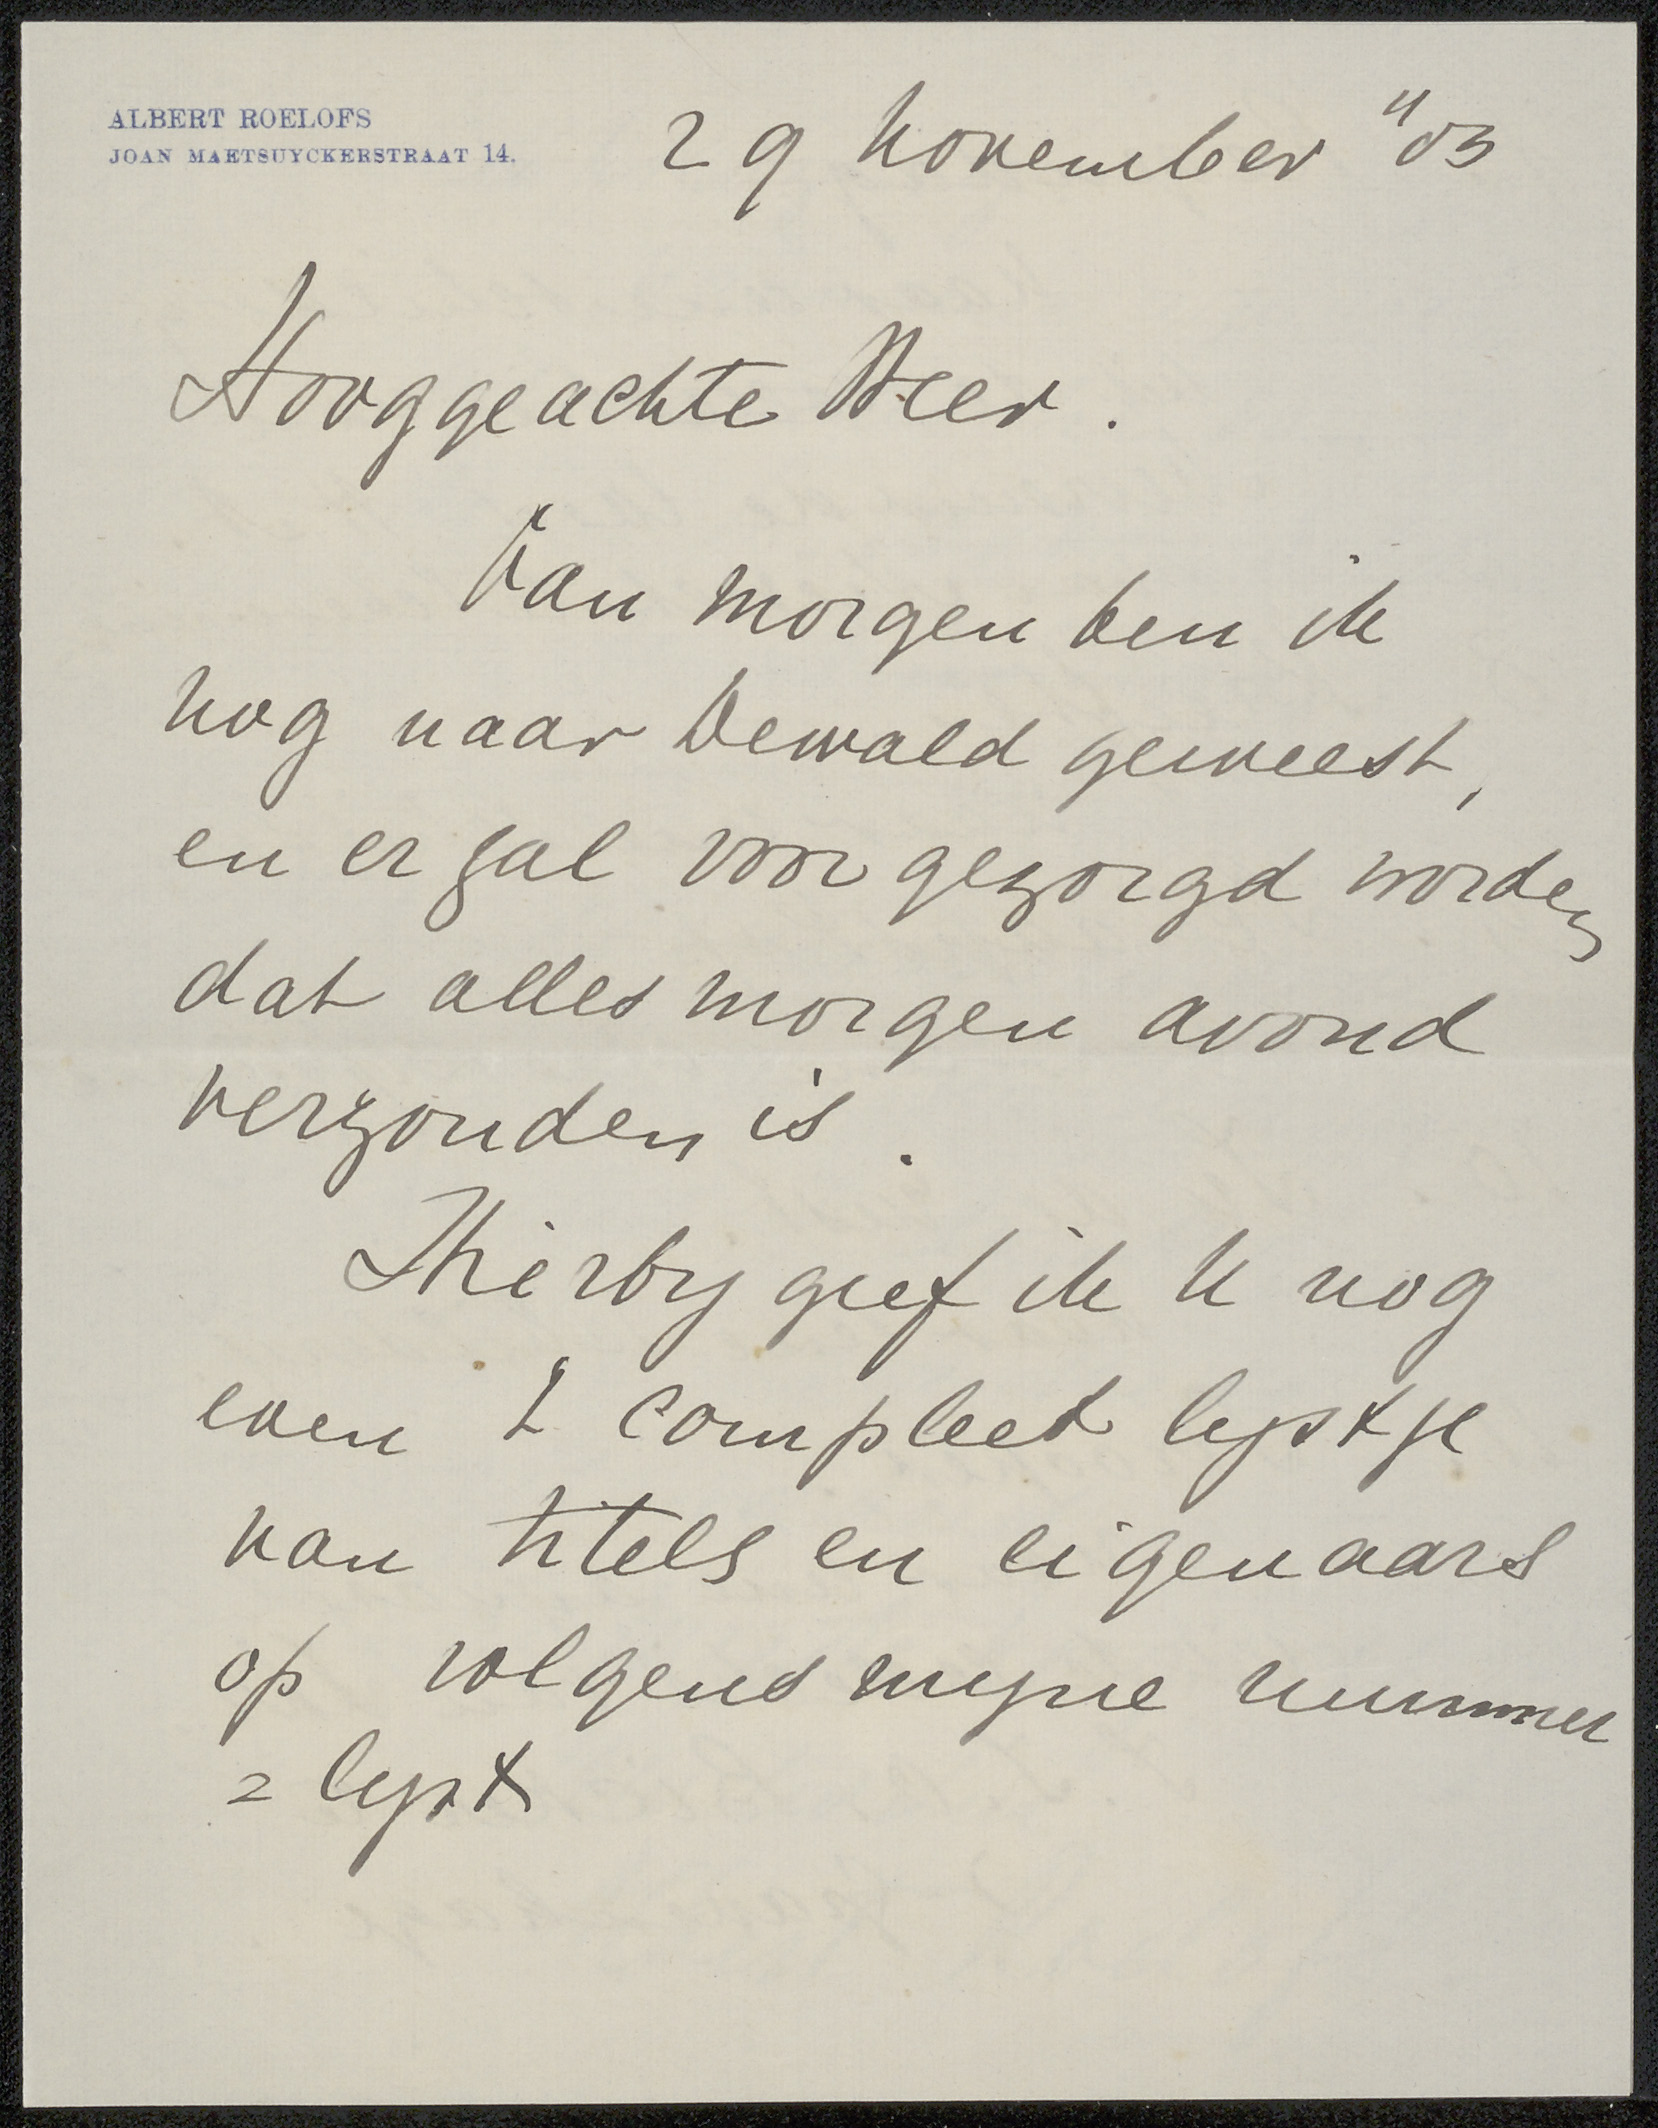 ALBERT ROELOFS
JOAN MAETSUYCKERSTRAAT 14.
29 November "03
Hooggeachte Heer.
Van morgen ben ik
nog naar Dewald geweest,
en er zal voor gezorgd worden
dat alles morgen avond
verzonden is.
Hierby geef ik U nog
even 't compleet lystje
van titels en eigenaars
op volgens myne nummer
= lyst